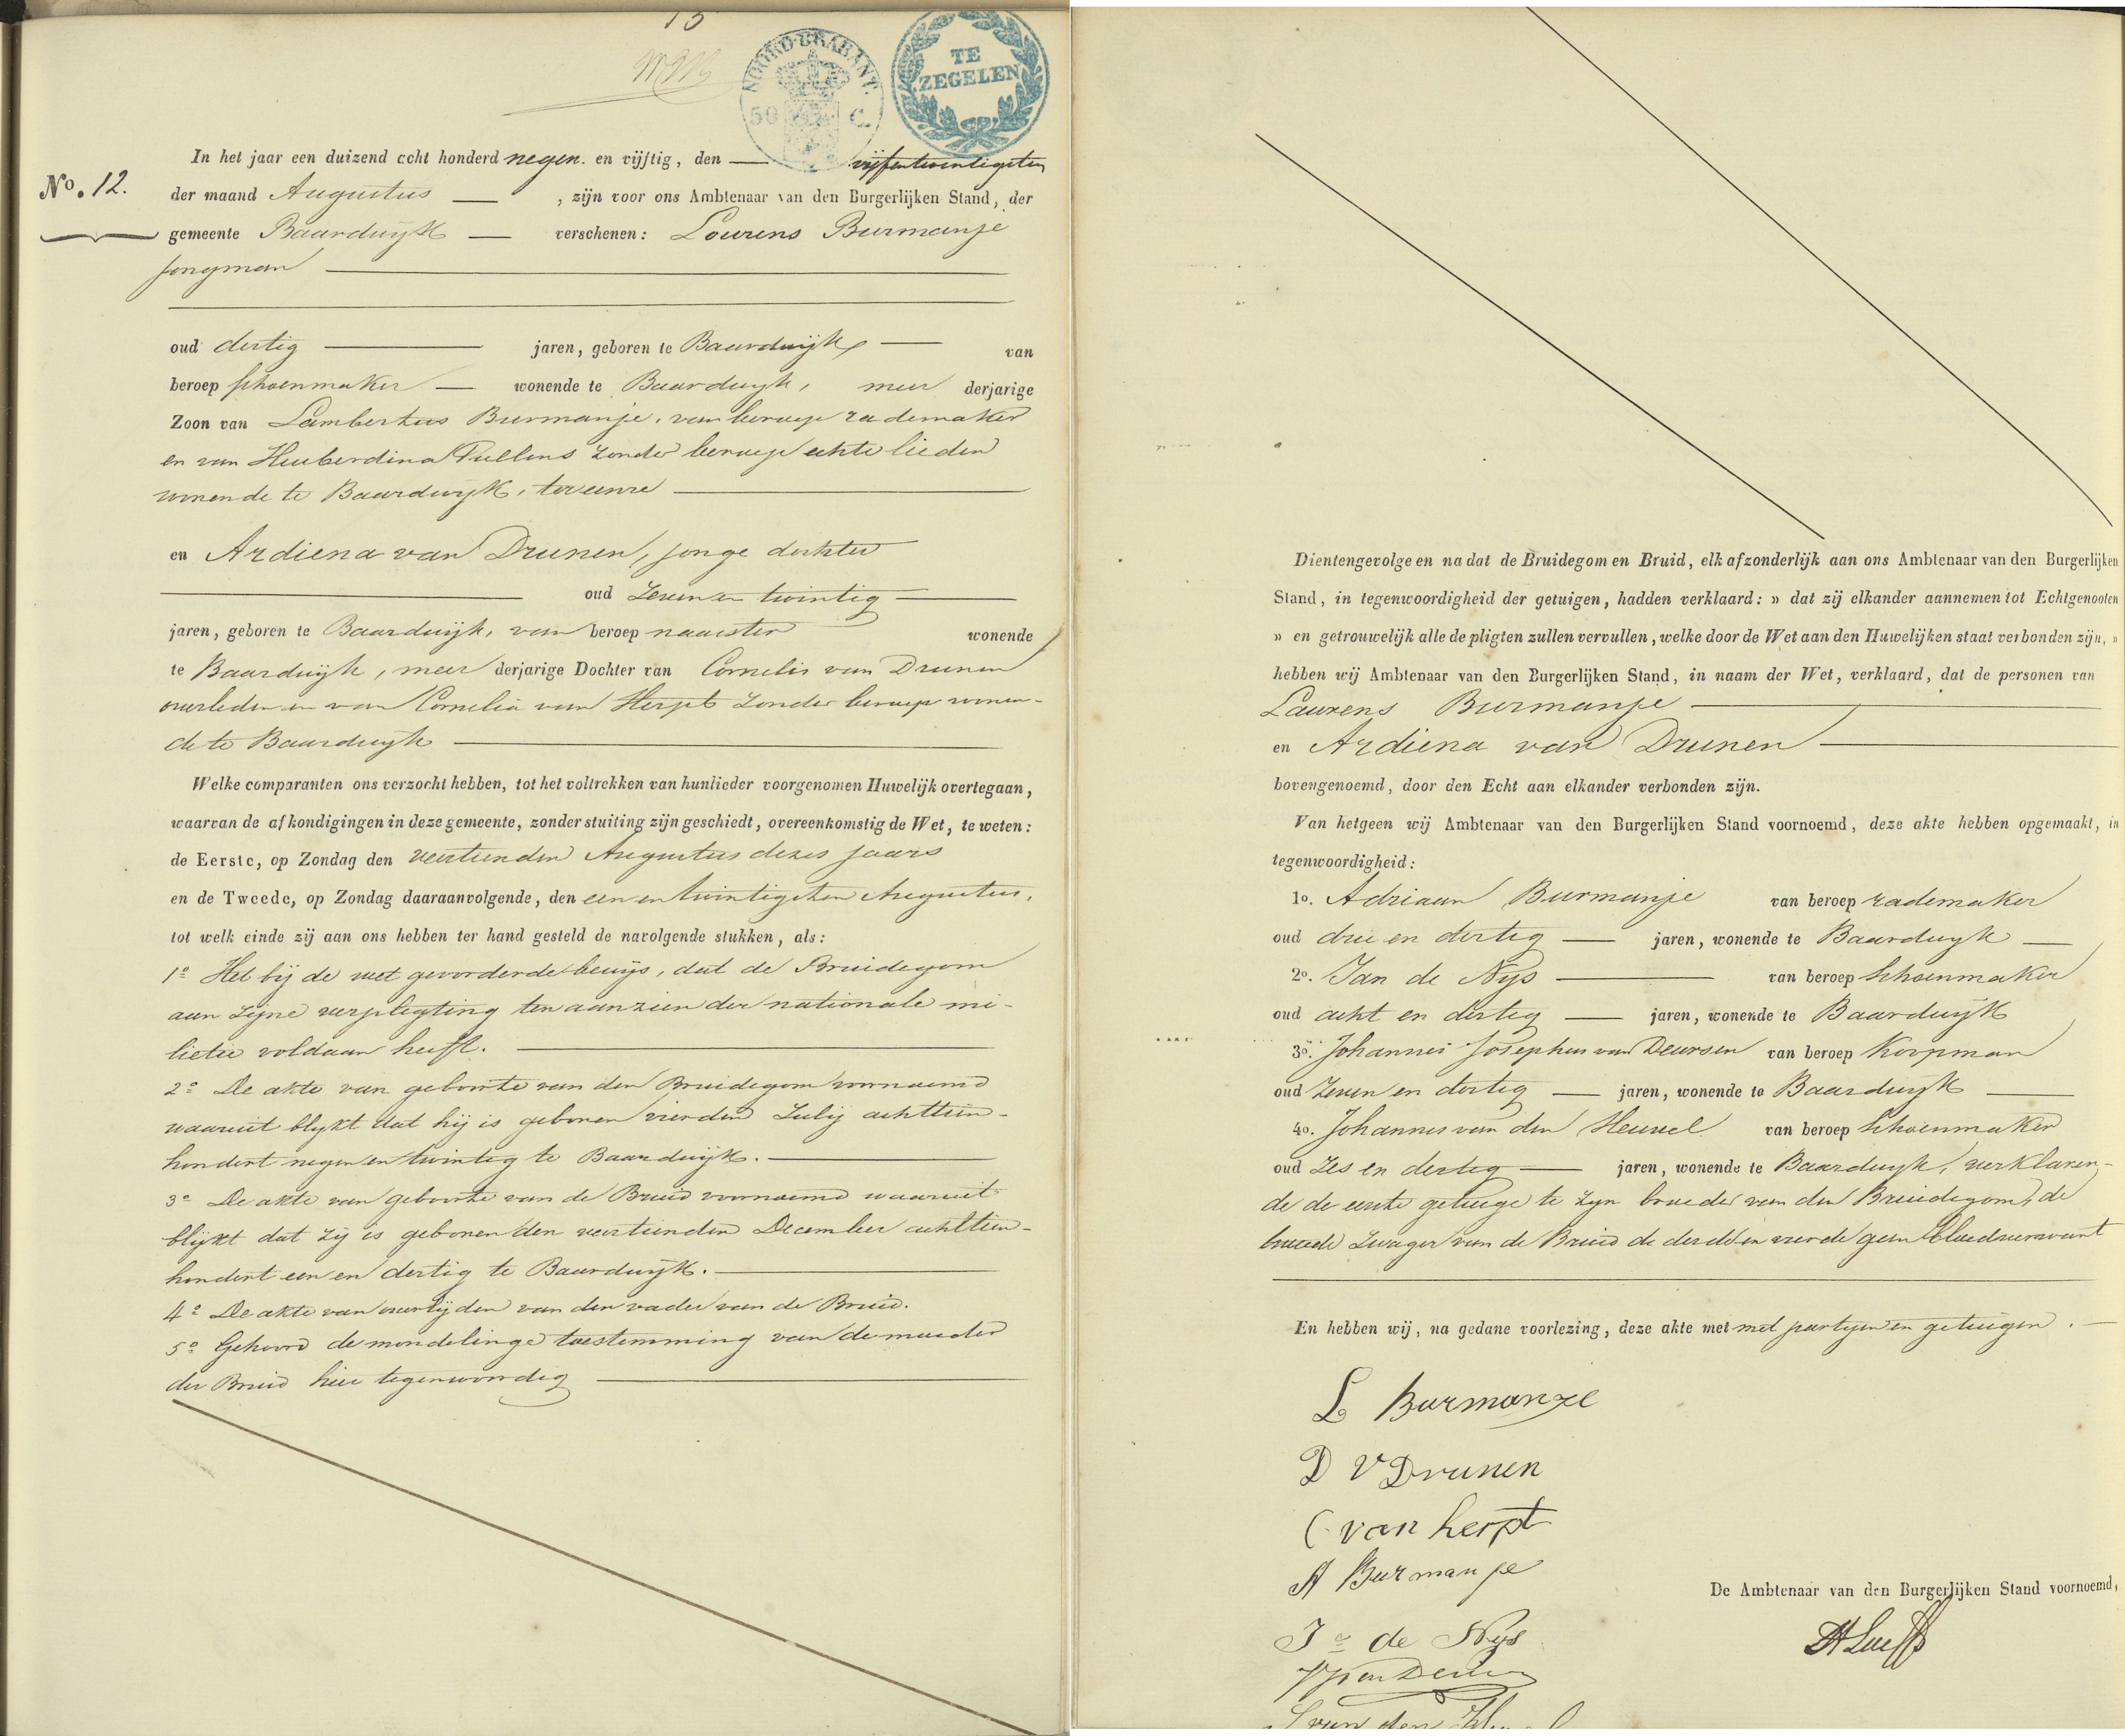 15
NOORD-BRABANT.
50 C.
TE
ZEGELEN
In het jaar een duizend acht honderd negen en vijftig, den vijfentwentigsten
No. 12.
der maand Augustus , zijn voor ons Ambtenaar van den Burgerlijken Stand, der
gemeente Baardwijk verschenen: Lourens Burmanje
jongman
oud dertig jaren, geboren te Baardwijk van
beroep schoenmaker wonende te Baardwijk, meer derjarige
Zoon van Lambertus Burmanje, van beroep rademaker
en van Huiberdina Tullens zonder beroep echte lieden
wonende te Baardwijk, ter eenre
en Ardiena van Drunen, jonge dochter
oud zeven en twintig
jaren, geboren te Baardwijk, van beroep naaister wonende
te Baardwijk, meer derjarige Dochter van Cornelis van Drunen
overleden en van Cornelia van Herpt zonder beroep wonen-
de te Baardwijk
Welke comparanten ons verzocht hebben, tot het voltrekken van hunlieder voorgenomen Huwelijk overtegaan,
waarvan de afkondigingen in deze gemeente, zonder stuiting zijn geschiedt, overeenkomstig de Wet, te weten:
de Eerste, op Zondag den veertienden Augustus dezes jaars
en de Tweede, op Zondag daaraanvolgende, den een en twintigsten Augustus,
tot welk einde zij aan ons hebben ter hand gesteld de navolgende stukken, als:
1o Het bij de wet gevorderde bewijs, dat de Bruidegom
aan zijne verpligting ten aanzien der nationale mi-
litie voldaan heeft.
2o De akte van geboorte van den Bruidegom voornoemd
waaruit blykt dat hij is geboren vierden Julij achttien-
hondert negen en twintig te Baardwijk.
3o De akte van geboorte van de Bruid voornoemd waaruit
blijkt dat zij is geboren den veertienden December achttien-
hondert een en dertig te Baardwijk.
4o De akte van overlijden van den vader van de Bruid.
5o Gehoord de mondelinge toestemming van de moeder
der Bruid hier tegenwoordig
Dientengevolge en na dat de Bruidegom en Bruid, elk afzonderlijk aan ons Ambtenaar van den Burgerlijken
Stand, in tegenwoordigheid der getuigen, hadden verklaard: » dat zij elkander aannemen tot Echtgenooten
» en getrouwelijk alle de pligten zullen vervullen, welke door de Wet aan den Huwelijken staat verbonden zijn, »
hebben wij Ambtenaar van den Burgerlijken Stand, in naam der Wet, verklaard, dat de personen van
Laurens Burmanje
en Ardiena van Drunen
bovengenoemd, door den Echt aan elkander verbonden zijn.
Van hetgeen wij Ambtenaar van den Burgerlijken Stand voornoemd, deze akte hebben opgemaakt, in
tegenwoordigheid:
1o. Adriaan Burmanje van beroep rademaker
oud drie en dertig jaren, wonende te Baardwijk
2o. Jan de Nijs van beroep schoenmaker
oud acht en dertig jaren, wonende te Baardwijk
3o. Johannes Josephus van Deursen van beroep koopman
oud zeven en dertig jaren, wonende te Baardwijk
4o. Johannes van den Heuvel van beroep schoenmaker
oud zes en dertig jaren, wonende te Baardwijk, verklaren-
de de eerste getuige te zyn broeder van den Bruidegom, de
tweede zwager van de Bruid de derde en vierde geen bloedverwant
En hebben wij, na gedane voorlezing, deze akte met met partijen en getuigen.
L Burmanje
D V Drunen
C van herpt
A Burmanje
Jn de Nijs
De Ambtenaar van den Burgerlijken Stand voornoemd,
van den